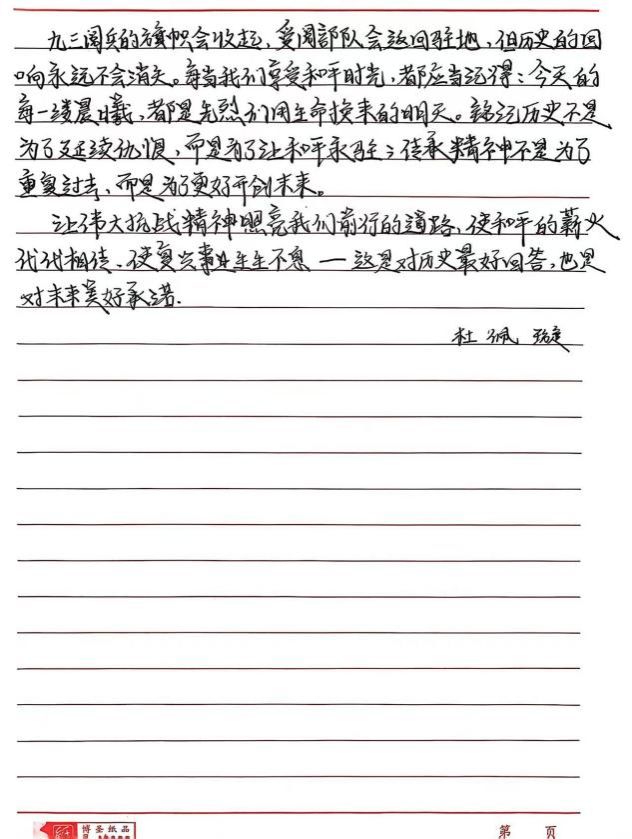 九三阅兵的旗帜会收起，受阅部队会返回驻地，但历史的回
响永远不会消失。每当我们享受和平时光，都应当记得：今天的
每一缕晨曦，都是先烈们用生命换来的明天。铭记历史不是
为了延续仇恨，而是为了让和平永驻；传承精神不是为了
重复过去，而是为了更好开创未来。
让伟大抗战精神照亮我们前行的道路，使和平的薪火
代代相传、使复兴事业生生不息 — 这是对历史最好回答，也是
对未来美好承诺.
杜 佩
博圣纸品
第 页